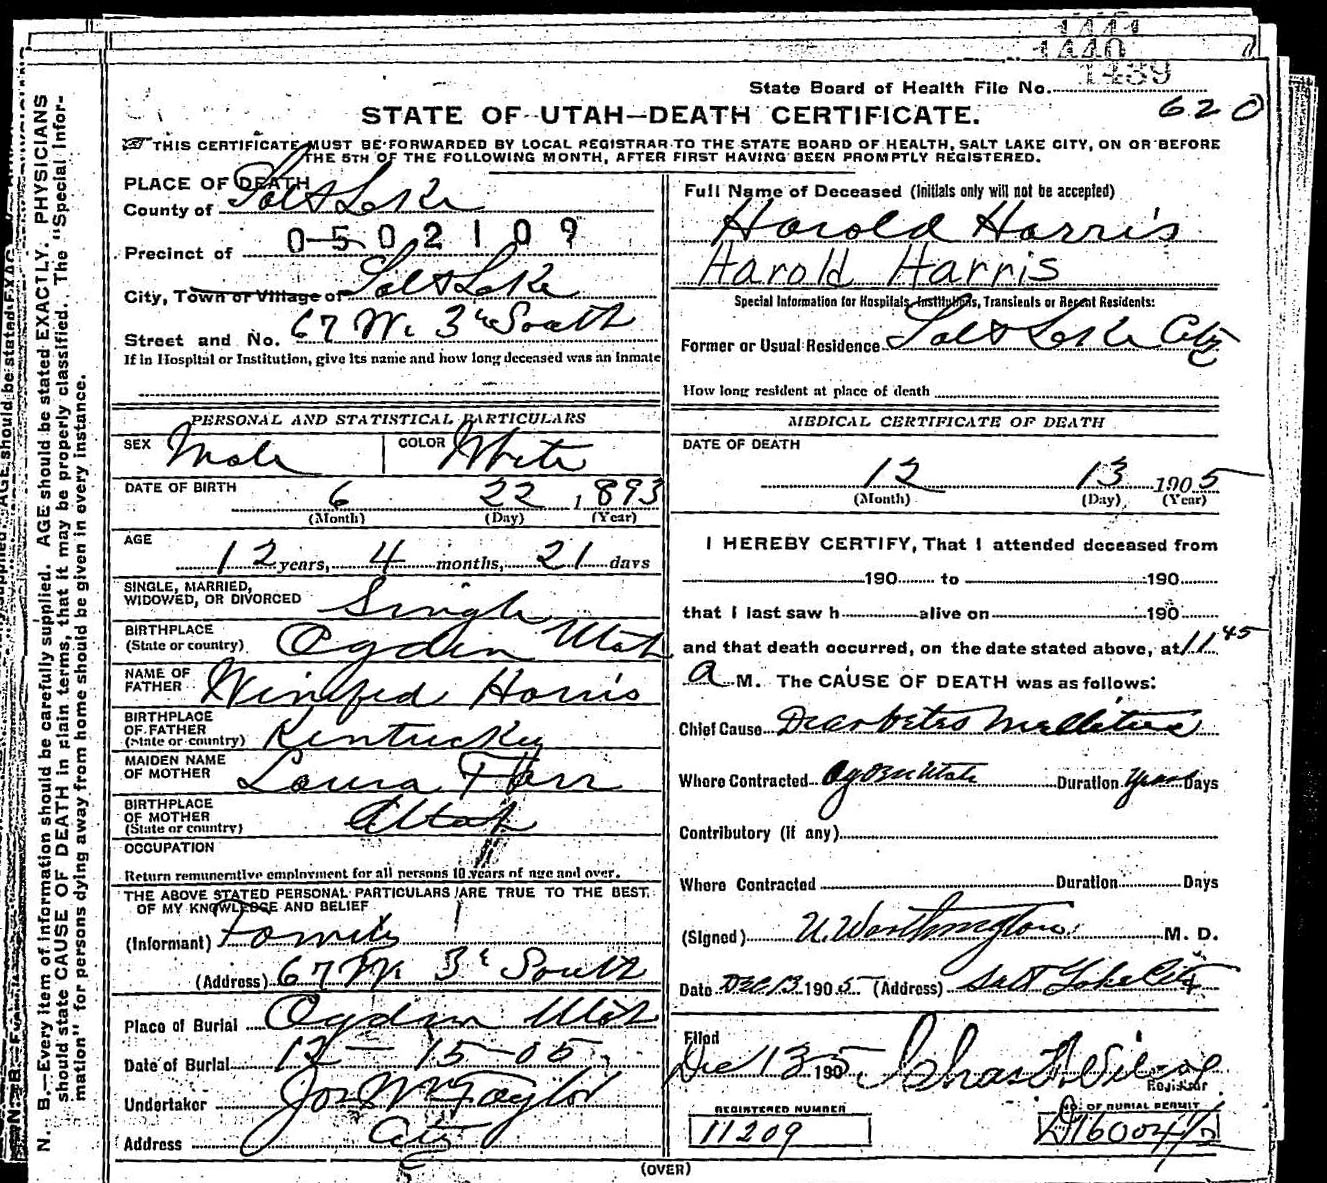 1441
1440
1439
State Board of Health File No.
620
STATE OF UTAH—DEATH CERTIFICATE.
THIS CERTIFICATE MUST BE FORWARDED BY LOCAL REGISTRAR TO THE STATE BOARD OF HEALTH, SALT LAKE CITY, ON OR BEFORE
THE 5TH OF THE FOLLOWING MONTH, AFTER FIRST HAVING BEEN PROMPTLY REGISTERED.
N. B.—Every item of information should be carefully supplied. AGE should be stated EXACTLY. PHYSICIANS
should state CAUSE OF DEATH in plain terms, that it may be properly classified. The "Special Infor-
mation" for persons dying away from home should be given in every instance.
PLACE OF DEATH
County of Salt Lake
0502109
Precinct of
City, Town or Village of Salt Lake
Street and No. 67 W. 3d South
If in Hospital or Institution, give its name and how long deceased was an inmate
PERSONAL AND STATISTICAL PARTICULARS
SEX Male COLOR White
DATE OF BIRTH 6 22, 1893
(Month) (Day) (Year)
AGE
12 years, 4 months, 21 days
SINGLE, MARRIED,
WIDOWED, OR DIVORCED Single
BIRTHPLACE
(State or country) Ogden Utah
NAME OF
FATHER Winifred Harris
BIRTHPLACE
OF FATHER
(State or country) Kentucky
MAIDEN NAME
OF MOTHER Laura
BIRTHPLACE
OF MOTHER
(State or country) Utah
OCCUPATION
Return remunerative employment for all persons 10 years of age and over.
THE ABOVE STATED PERSONAL PARTICULARS ARE TRUE TO THE BEST
OF MY KNOWLEDGE AND BELIEF
(Informant) Family
(Address) 67 W. 3d South
Place of Burial Ogden Utah
Date of Burial 12-15-05
Undertaker Jos Wm Taylor
Address City
Full Name of Deceased (Initials only will not be accepted)
Harold Harris
Harold Harris
Special Information for Hospitals, Institutions, Transients or Recent Residents:
Former or Usual Residence Salt Lake City
How long resident at place of death
MEDICAL CERTIFICATE OF DEATH
DATE OF DEATH
12 13 1905
(Month) (Day) (Year)
I HEREBY CERTIFY, That I attended deceased from
190 to 190
that I last saw h alive on 190
and that death occurred, on the date stated above, at 11 45
A M. The CAUSE OF DEATH was as follows:
Chief Cause Diabetes Mellitus
Where Contracted Ogden Utah Duration Years Days
Contributory (if any)
Where Contracted Duration Days
(Signed) U. Worthington M. D.
Date Dec 13 1905 (Address) Salt Lake City
Filed
Dec 13 1905 Chas
Registrar
REGISTERED NUMBER
11209
NO. OF BURIAL PERMIT
(OVER)